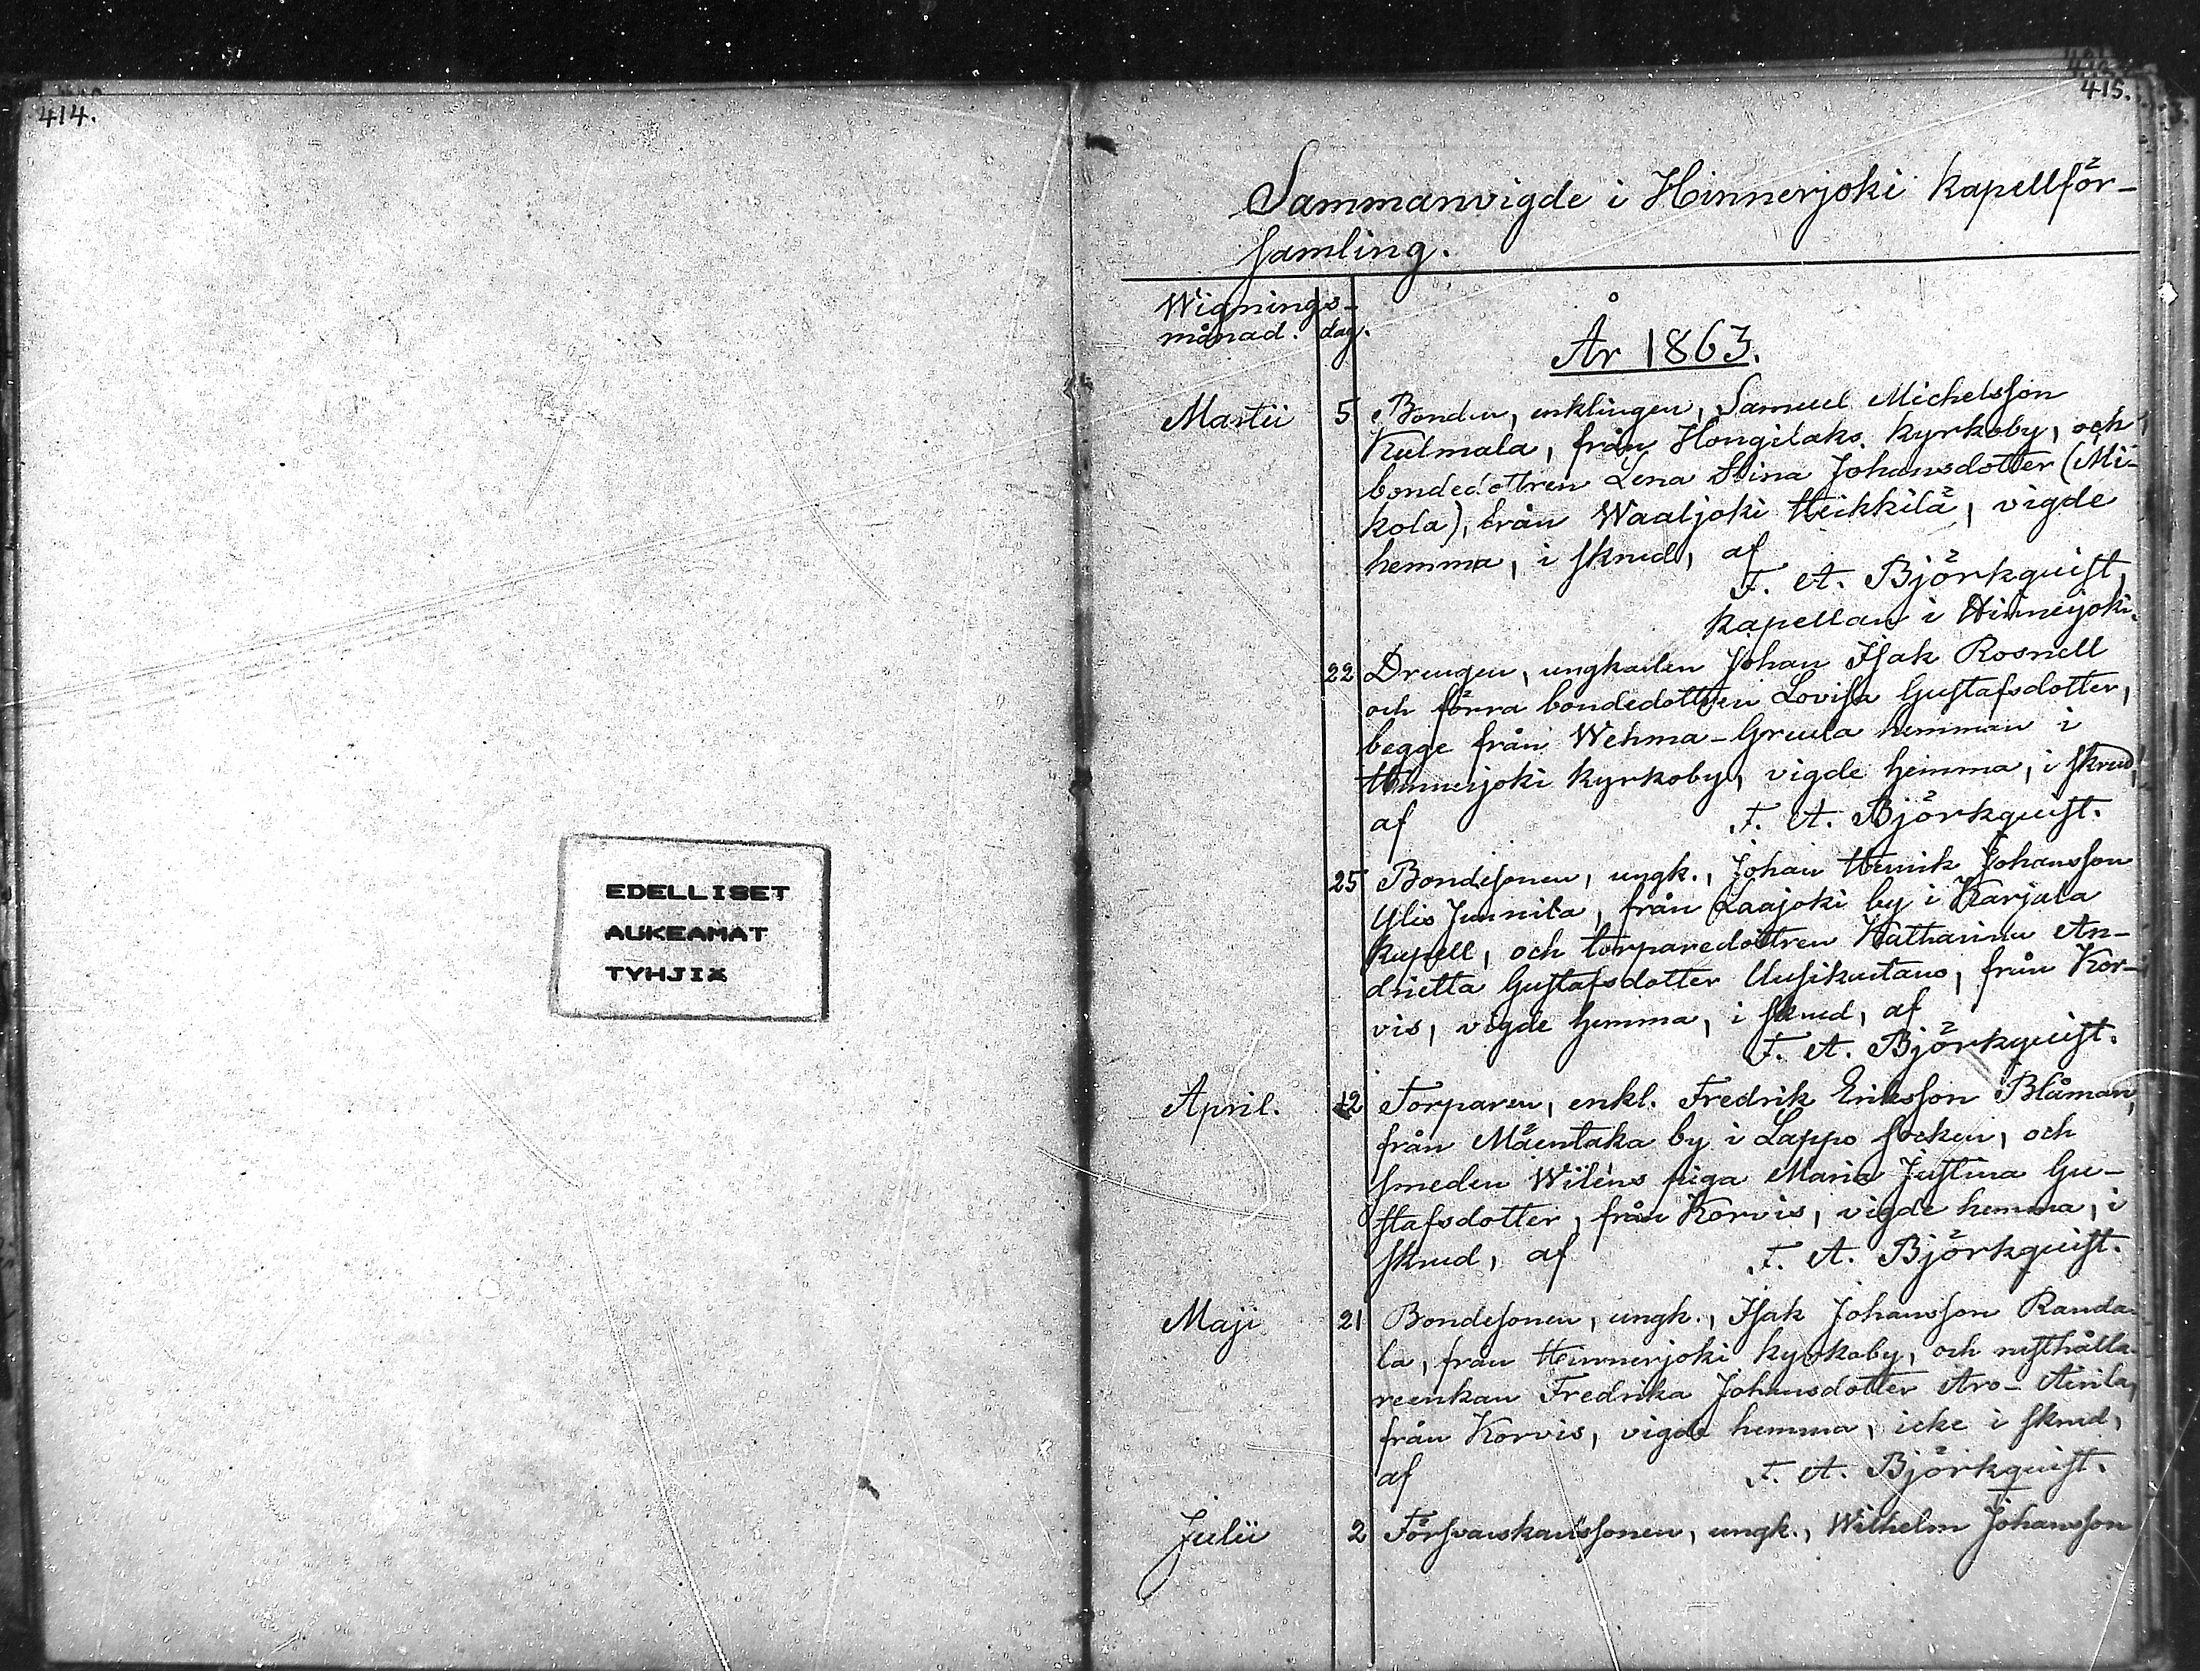 414.
EDELLISET
AUKEAMAT
TYHJIÄ
415.
Sammanvigde i Hinnerjoki kapellför-
samling.
Wignings-
månad. dag.
År 1863.
Martii 5 Bonden, enklingen, Samuel Michelsson
Kulmala, från Hongilaks kyrkoby, och
bondedottren Lena Stina Johansdotter (Mi-
kola), från Waaljoki Heikkilä, vigde
hemma, i skrud, af
F. A. Björkquist,
kapellan i Hinnerjoki.
22 Drengen, ungkarlen Johan Isak Rosnell
och förra bondedottren Lovisa Gustafsdotter,
begge från Wehma-Greula hemman i
Hinnerjoki kyrkoby, vigde hemma, i skrud,
af F. A. Björkquist.
25 Bondesonen, ungk., Johan Henrik Johansson
Ylis Junnila, från Laajoki by i Karjala
kapell, och torparedottren Katharina An-
drietta Gustafsdotter Uusikartano, från Kor-
vis, vigde hemma, i skrud, af
F. A. Björkquist.
April. 12 Torparen, enkl. Fredrik Eriksson Blåman,
från Mäentaka by i Lappo socken, och
smeden Wiléns piga Maria Justina Gu-
stafsdotter, från Korvis, vigde hemma, i
skrud, af F. A. Björkquist.
Maji 21 Bondesonen, ungk., Isak Johansson Randa-
la, från Hinnerjoki kyrkoby, och rusthålla-
reenkan Fredrika Johansdotter Aro-Anila,
från Korvis, vigde hemma, icke i skrud,
af F. A. Björkquist.
Julii 2 Försvarskarlssonen, ungk., Wilhelm Johansson